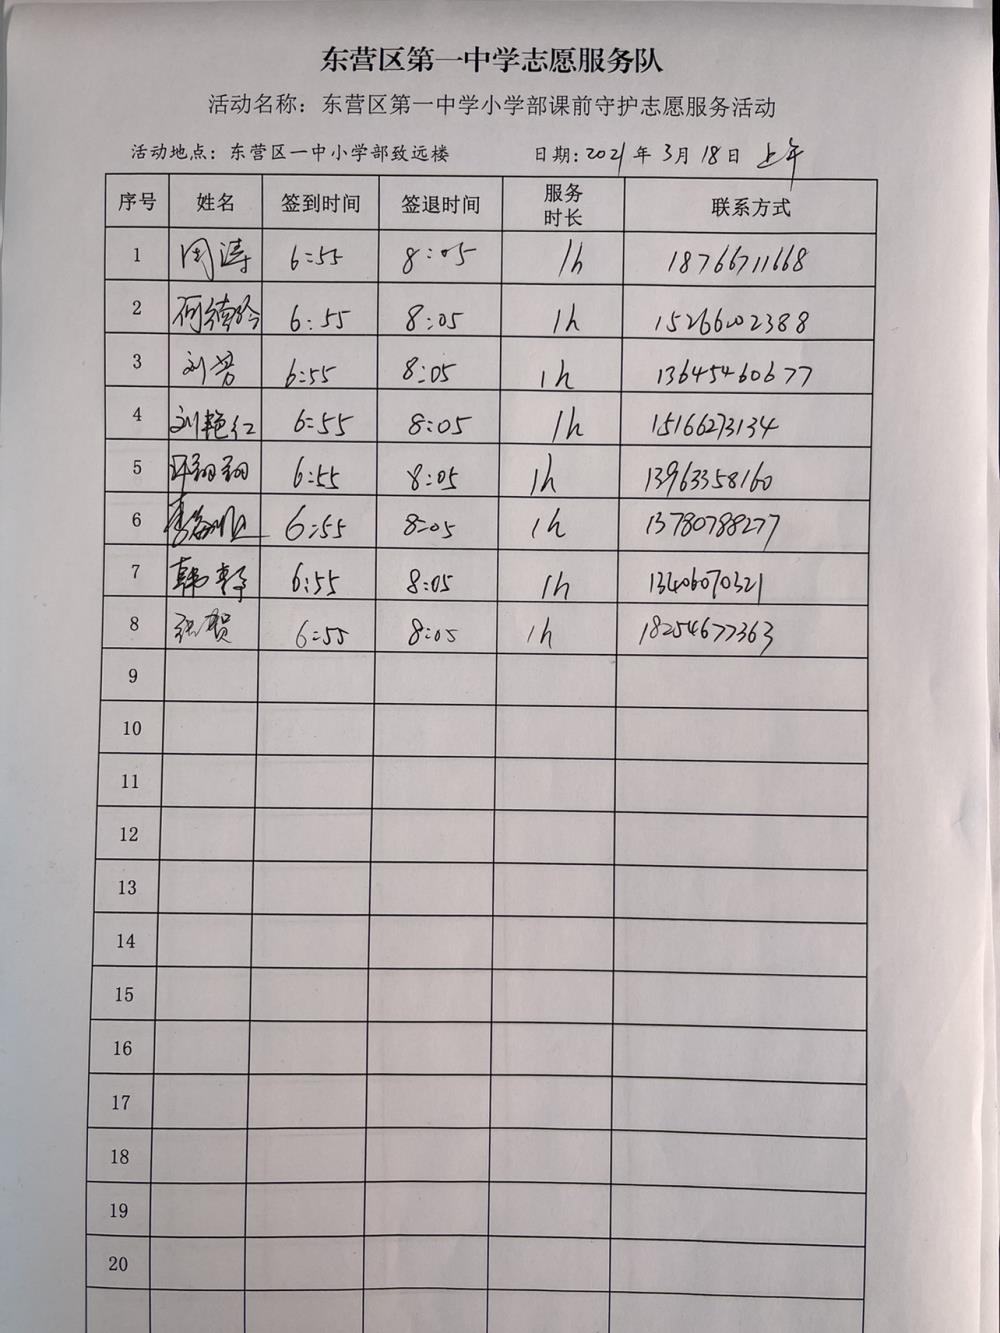 东营区第一中学志愿服务队
活动名称：东营区第一中学小学部课前守护志愿服务活动
活动地点：东营区一中小学部致远楼 日期：2021年 3月 18日 上午
序号 姓名 签到时间 签退时间 服务时长 联系方式
1 周涛 6:55 8:05 1h 18766711668
2 6:55 8:05 1h 15266202388
3 刘芳 6:55 8:05 1h 13645460677
4 刘艳红 6:55 8:05 1h 15166273134
5 翔翔 6:55 8:05 1h 13963358160
6 李 6:55 8:05 1h 13780788277
7 韩 6:55 8:05 1h 13406070321
8 张贺 6:55 8:05 1h 18254677363
9
10
11
12
13
14
15
16
17
18
19
20